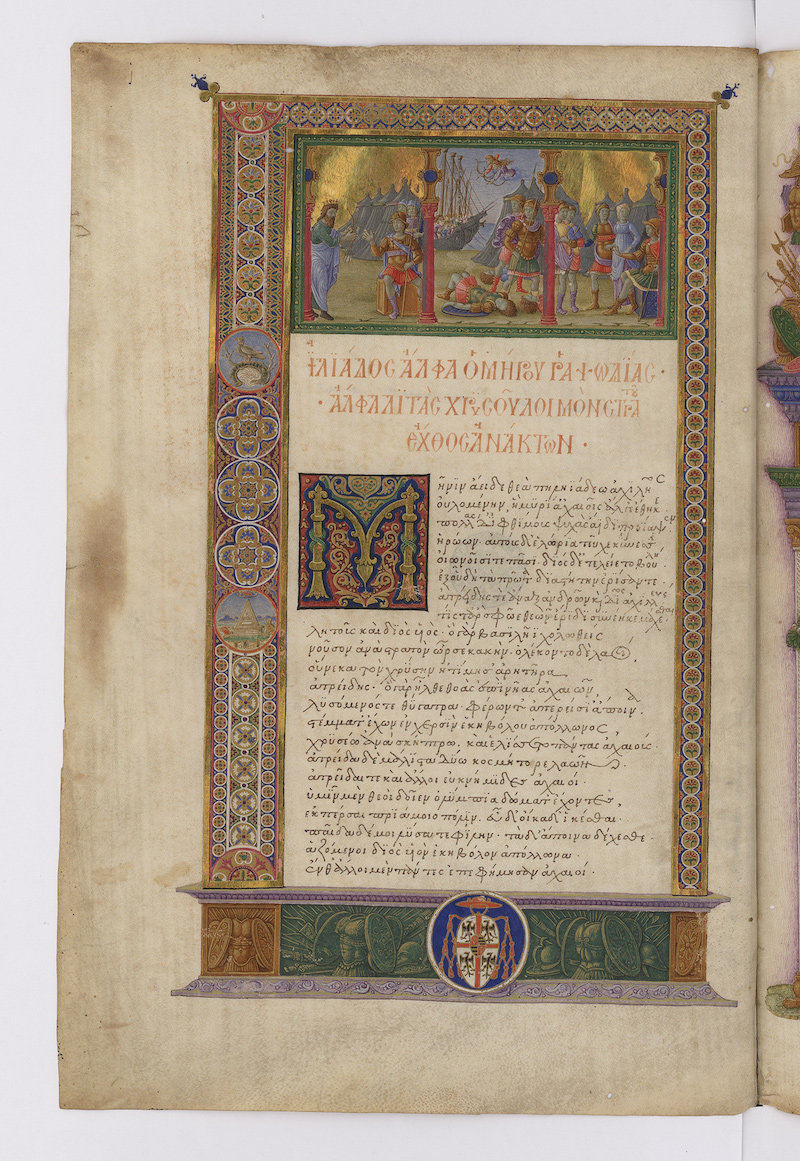 ἸΛΙΆΔΟΣ ἌΛΦΑ ὉΜΉΡΟΥ ῬΑΨΩΔΊΑΣ·
·ἌΛΦΑ ΛΙΤᾺΣ ΧΡΎΣΟΥ ΛΟΙΜῸΝ ΣΤΡΑΤΟΥ͂
ἜΧΘΟΣ ἈΝΆΚΤΩΝ·
Μῆνιν ἄειδε θεὰ πηληϊάδεω ἀχιλῆος
οὐλομένην, ἣ μυρί' ἀχαιοῖς ἄλγε' ἔθηκε
πολλὰς δ' ἰφθίμους ψυχὰς ἄϊδι προΐαψεν
ἡρώων· αὐτοὺς δ' ἑλώρια τεῦχε κύνεσσιν
οἰωνοῖσί τε πᾶσι· διὸς δ' ἐτελείετο βουλή·
ἐξ οὗ δὴ τὰ πρῶτα διαστήτην ἐρίσαντε·
ἀτρείδης τε ἄναξ ἀνδρῶν καὶ δῖος ἀχιλλεύς
τίς τάρ σφωε θεῶν ἔριδι ξυνέηκε μάχεσθαι·
λητοῦς καὶ διὸς υἱός· ὁ γὰρ βασιλῆϊ χολωθεὶς
νοῦσον ἀνὰ στρατὸν ὦρσε κακήν. ὀλέκοντο δὲ λαοί
οὕνεκα τὸν χρύσην ἠτίμησ' ἀρητῆρα
ἀτρείδης· ὁ γὰρ ἦλθε θοὰς ἐπὶ νῆας ἀχαιῶν
λυσόμενός τε θύγατρα· φέρων τ' ἀπερείσι' ἄποινα
στέμματ' ἔχων ἐν χερσὶν ἑκηβόλου ἀπόλλωνος
χρυσέω ἀνὰ σκήπτρω. καὶ ἐλίσσετο πάντας ἀχαιούς·
ἀτρείδα δὲ μάλιστα δύω κοσμήτορε λαῶν·
ἀτρεῖδαι τε καὶ ἄλλοι ἐϋκνήμιδες ἀχαιοί·
ὑμῖν μὲν θεοὶ δοῖεν ὀλύμπια δώματ' ἔχοντες,
ἐκπέρσαι πριάμοιο πόλιν. εὖ δ' οἴκαδ' ἱκέσθαι·
παῖδα δέ μοι λύσατε φίλην· τὰ δ' ἄποινα δέχεσθε·
ἁζόμενοι διὸς υἱὸν ἑκηβόλον ἀπόλλωνα·
ἔνθ' ἄλλοι μὲν πάντες ἐπευφήμησαν ἀχαιοί·